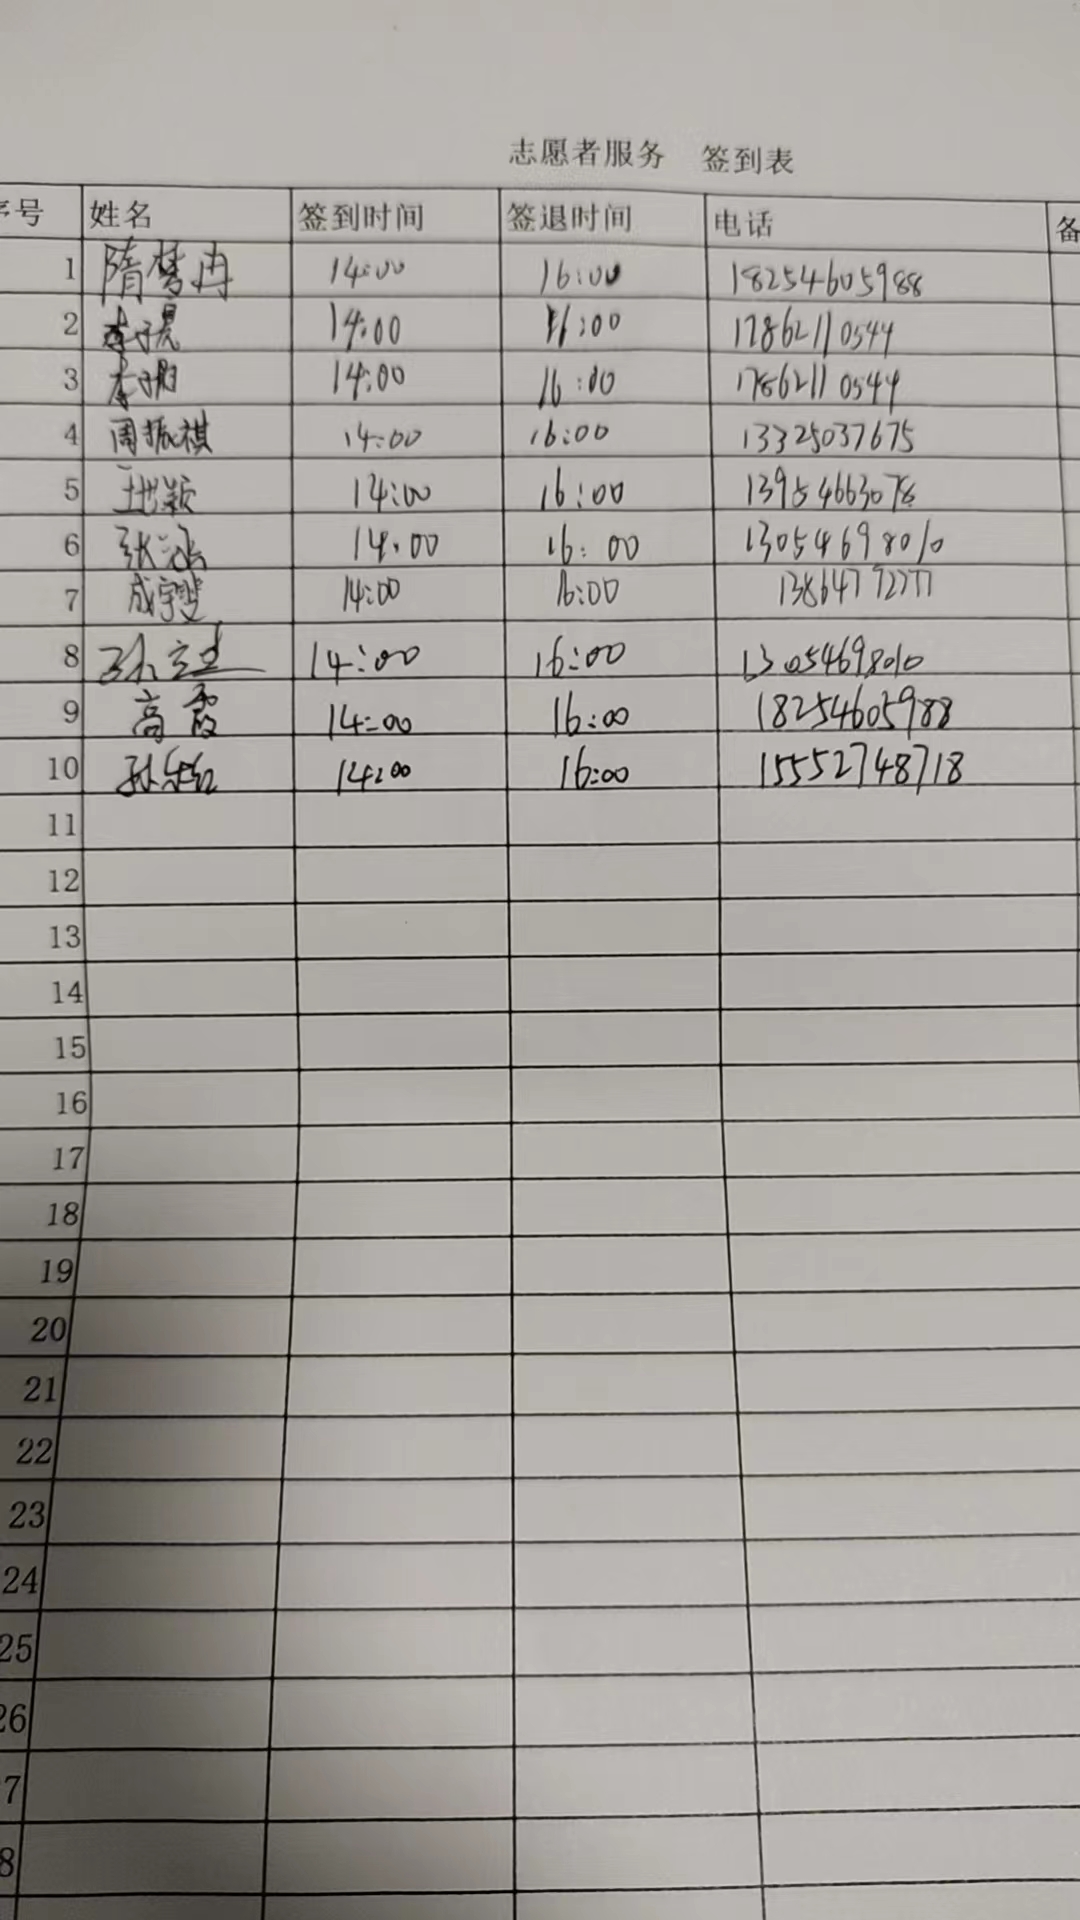 志愿者服务 签到表
序号 姓名 签到时间 签退时间 电话 备
1 隋梦冉 14:00 16:00 18254605988
2 李子 14:00 16:00 17862110544
3 李 14:00 16:00 17862110544
4 周振祺 14:00 16:00 13325037675
5 王 颖 14:00 16:00 13954663078
6 张涵 14:00 16:00 13054698010
7 成宇斐 14:00 16:00 13864772777
8 孙 14:00 16:00 13054698010
9 高霞 14:00 16:00 18254605988
10 孙 红 14:00 16:00 15552748718
11
12
13
14
15
16
17
18
19
20
21
22
23
24
25
26
7
8